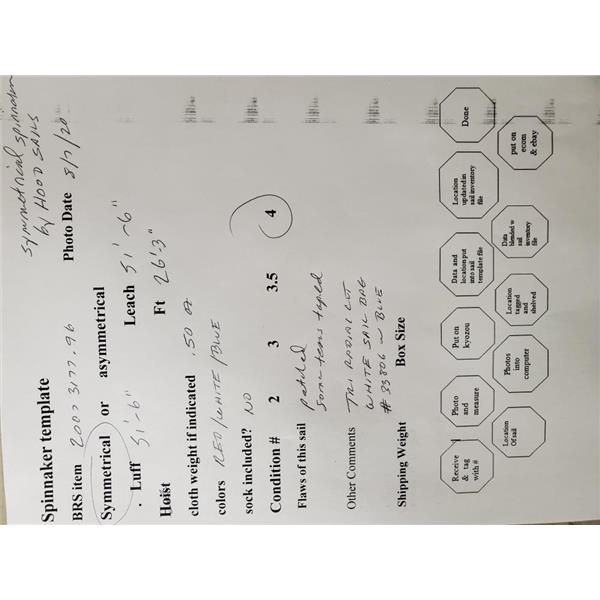 Symmetrical spinnaker
by HOOD SAILS
Spinnaker template
BRS item 2007 3177.96 Photo Date 8/7/20
Symmetrical or asymmetrical
Luff 51'-6" Leach 51'-6"
Hoist Ft 26'-3"
cloth weight if indicated .50 oz
colors RED/WHITE/BLUE
sock included? NO
Condition # 2 3 3.5 4
Flaws of this sail patched
some tears taped
Other Comments TRI RADIAL CUT
WHITE SAIL BAG
# 33806 BLUE
Shipping Weight Box Size
Receive & tag with #
Photo and measure
Put on kyozou
Data and location put into sail template file
Location updated in sail inventory file
Done
Location Of sail
Photos into computer
Location tagged and shelved
Data blended w sail inventory file
put on ecom & ebay